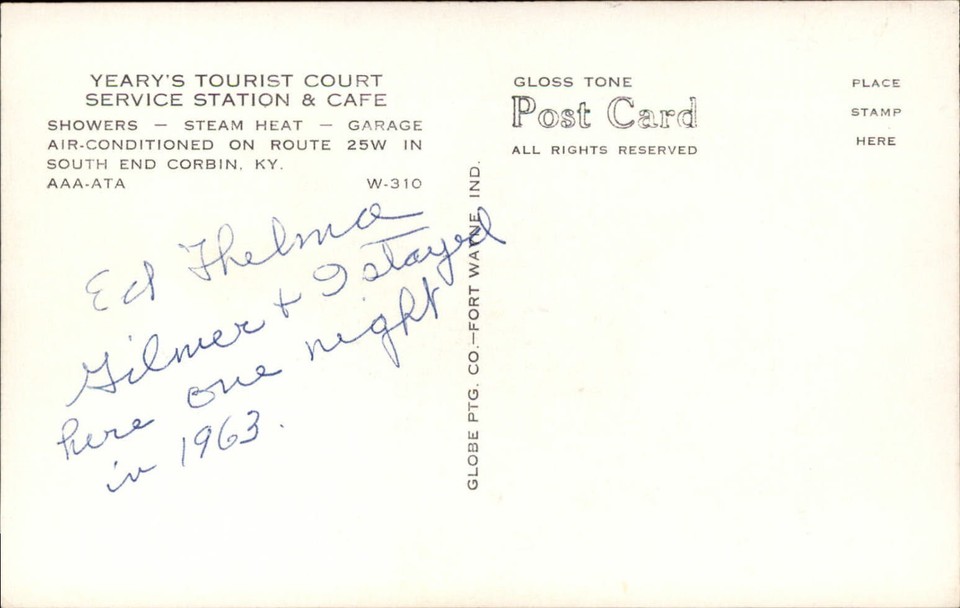 YEARY'S TOURIST COURT
SERVICE STATION & CAFE
SHOWERS — STEAM HEAT — GARAGE
AIR-CONDITIONED ON ROUTE 25W IN
SOUTH END CORBIN, KY.
AAA-ATA W-310
Ed Thelma
Gilmer + I stayed
here one night
in 1963.
GLOBE PTG. CO.—FORT WAYNE, IND.
GLOSS TONE
Post Card
ALL RIGHTS RESERVED
PLACE
STAMP
HERE